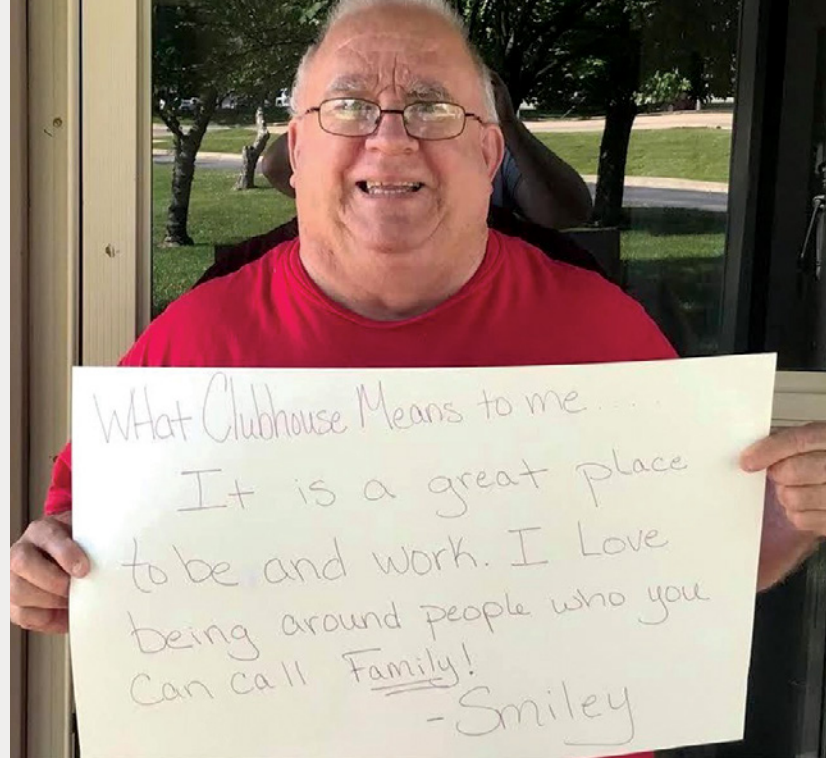 WHat Clubhouse Means to me.....
It is a great place
to be and work. I Love
being around people who you
Can call Family!
-Smiley